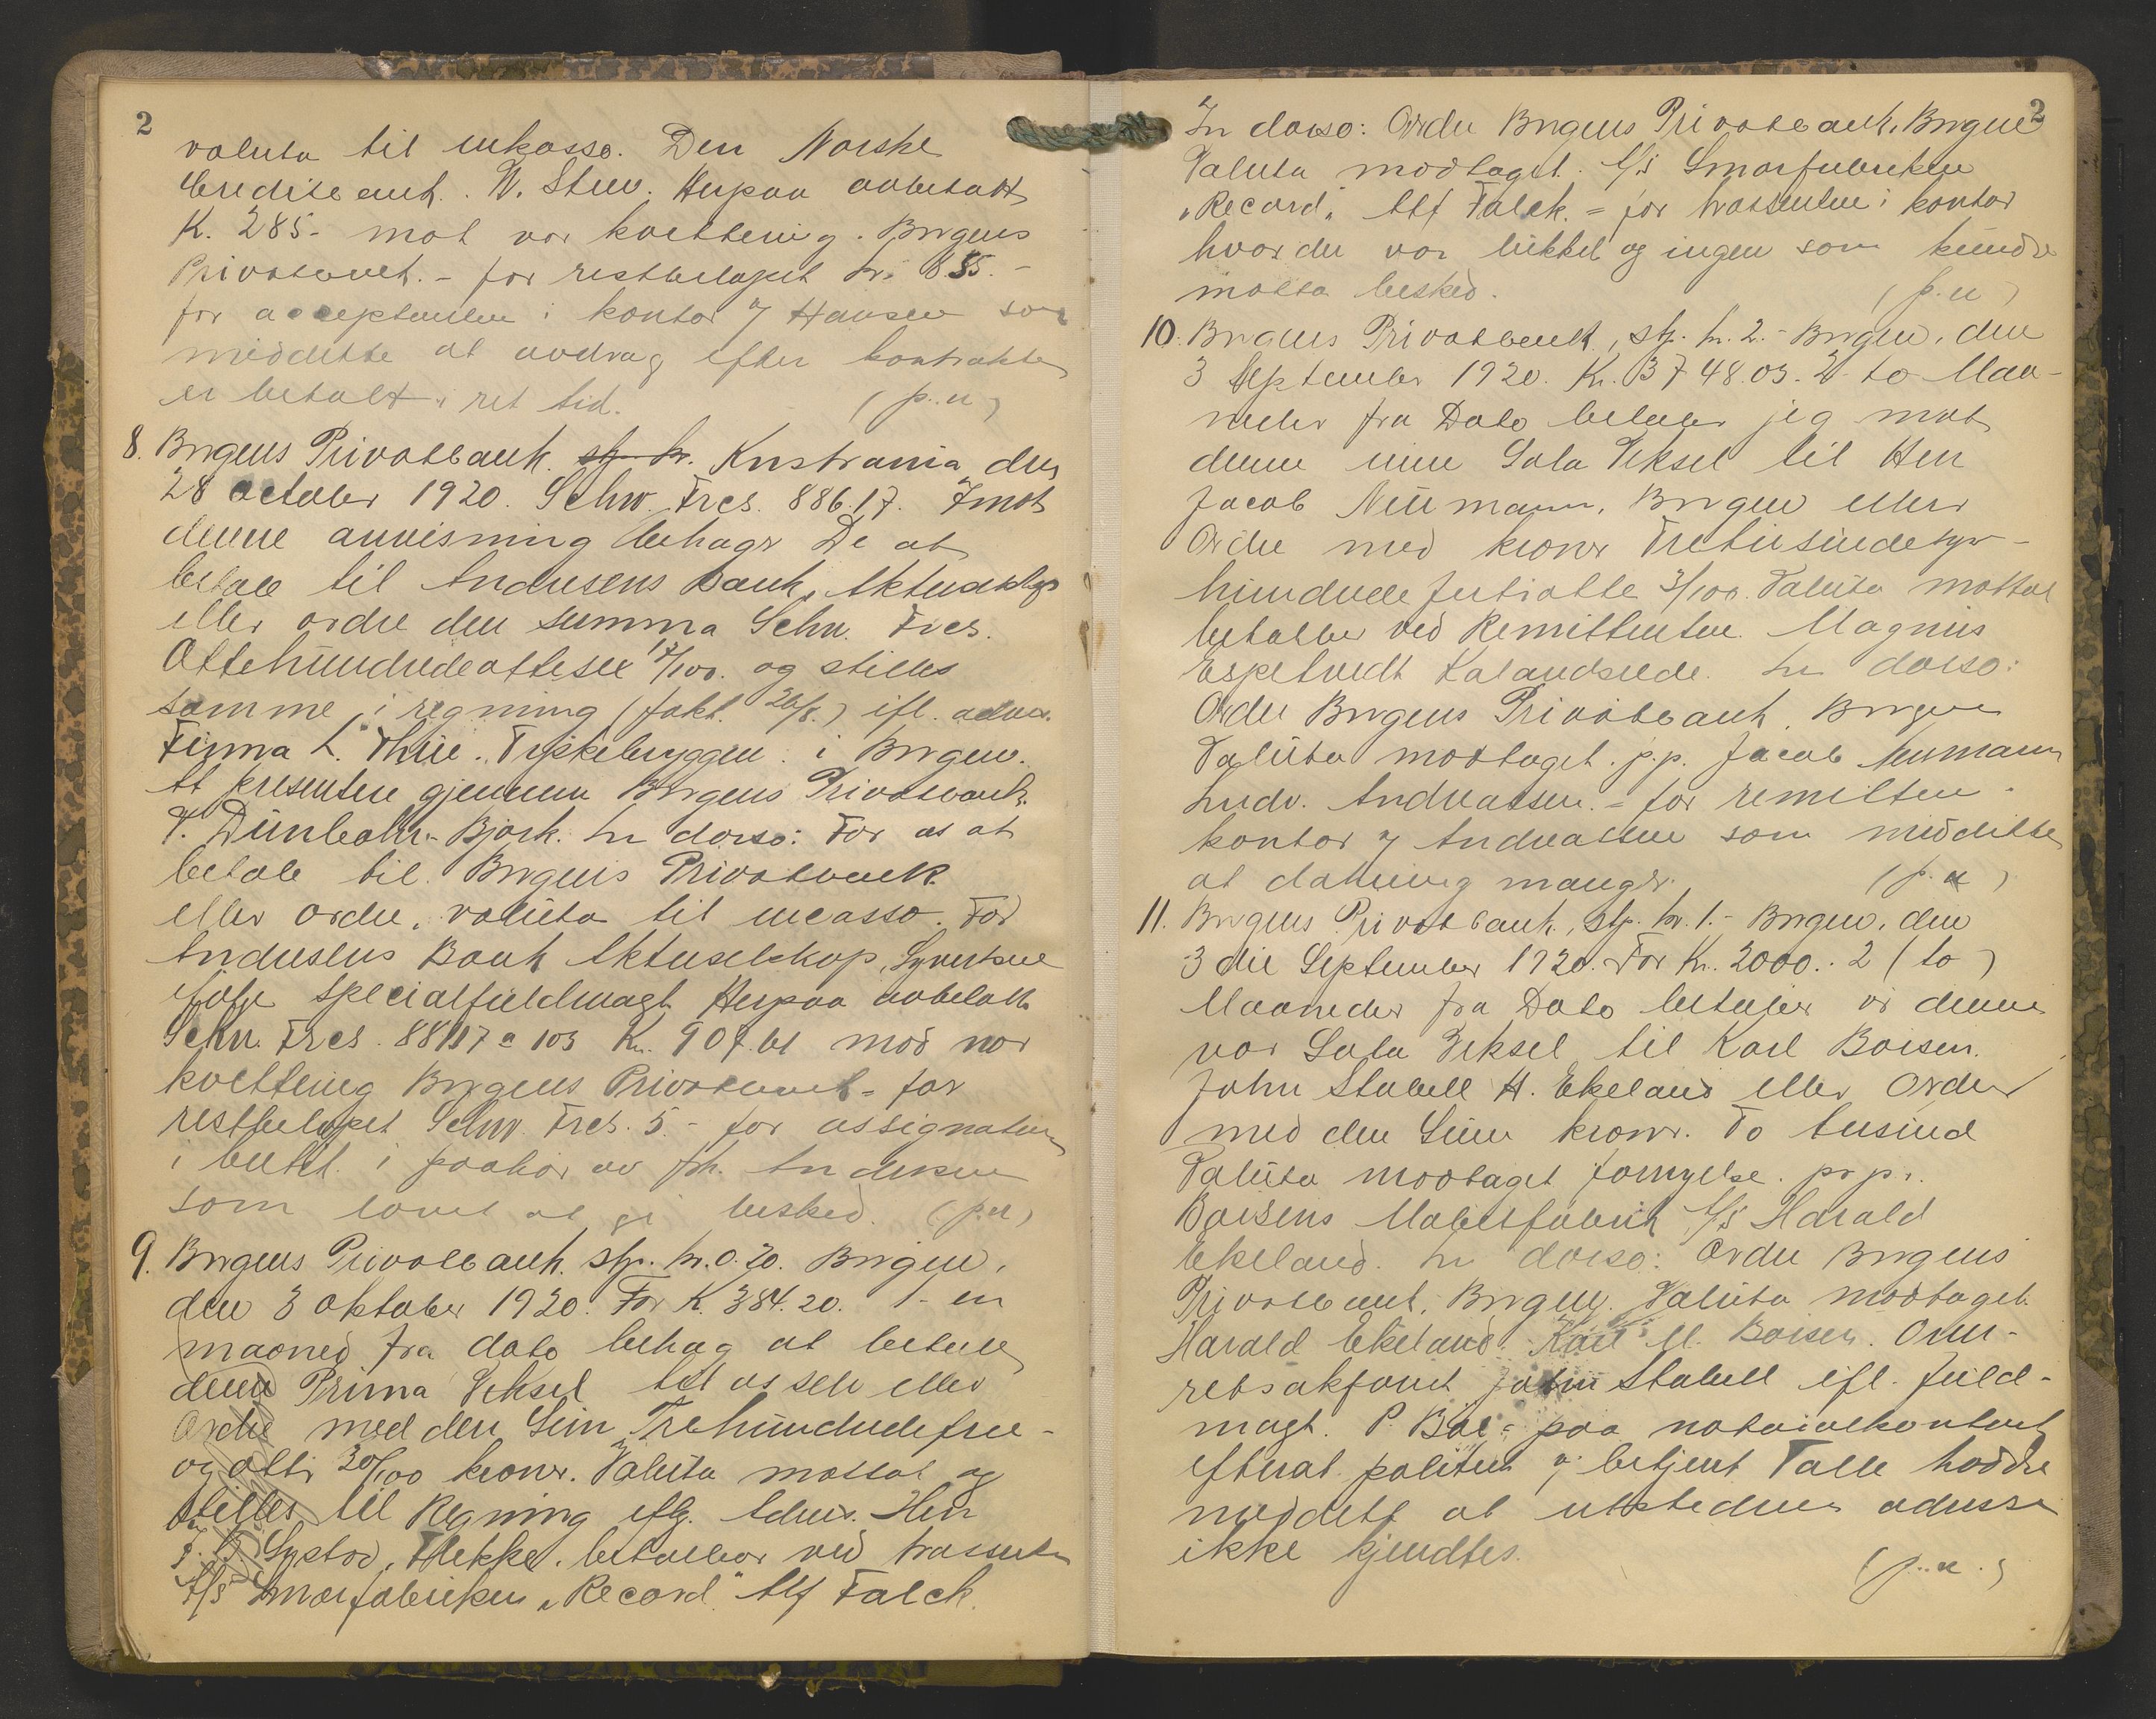 2
valuta til inkasso. Den Norske
Creditbank. N. Stuv. Herpaa avbetalt
K. 285.- mot vor kvittering. Bergens
Privatbank. - for restbeløpet kr. 855.-
for acceptanten i kontor ɔ/ Hansen som
meddelte at avdrag efter kontrakten
er betalt i ret tid. (p.u)
8. Bergens Privatbank. Kristiania den
28 october 1920. Schw. Frcs. 886.17. Imot
denne anvisning behager De at
betale til Andresens Bank, Aktieselskap
eller ordre den summa Schw. Frcs.
Ottehundredeottisex 17/100. og stilles
samme i regning (fakt. 26/8.) ifl. advis.
Firma L. Thüe. Tyskebryggen i Bergen.
At presentere gjennem Bergens Privatbank.
In dorso: For os at
betale til Bergens Privatbank
eller ordre, valuta til incasso. For
Andresens Bank Aktieselskap, Syvertsen
ifølge specialfuldmagt Herpaa avbetalt
Schw. Frcs. 88117 a 103 K. 907.61 mod vor
kvittering Bergens Privatbank - for
restbeløpet Schw. Frcs. 5.- for assignaten
i butik. i paahør av frk. Andersen
som lovet at gi besked. (p.u)
9. Bergens Privatbank. stp. kr. 0.20. Bergen,
den 3 oktober 1920. For K. 384.20. 1- en
maaned fra dato behag at betale
denne Prima Veksel til os selv eller
Ordre med den Sum Trehundredefire-
og otti 20/100 kroner. Valuta mottat og
stilles til Regning iflg. Advis. Herr
Systad, Flekke. betalbar ved trassenten
A/S Smørfabriken "Record" Alf Falck.
2
In dorso: Ordre Bergens Privatbank, Bergen
Valuta modtaget. A/S Smørfabriken
"Record" Alf Falck. = for trassenten i kontor
hvor der var lukket og ingen som kunde
motta besked. (p.u)
10. Bergens Privatbank, stp. kr. 2.- Bergen, den
3 September 1920. Kr. 3748.03. 2 to Maa-
neder fra Dato betaler jeg mot
denne min Sola Veksel til Herr
Jacob Neumann, Bergen eller
Ordre med kroner Tretusindesyv-
hundrede fortiotte 3/100. Valuta mottat
betalbar ved Remittenten. Magnus
Espetvedt Kalandseide. In dorso:
Ordre Bergens Privatbank, Bergen
Valuta modtaget. p.p. Jacob Neumann
Ludv. Andreassen. = for remitten.
kontor ɔ/ Andreassen som meddelte
at dækning mangler. (p.u)
11. Bergens Privatbank, stp. kr. 1.- Bergen, den
3die September 1920. For Kr. 2000.. 2 (to)
Maaneder fra Dato betaler vi denne
vor Sola Veksel til Karl Boisen.
John Stabell H. Ekeland eller Ordre
med den Sum kroner. To tusind
Valuta modtaget fornyelse. pr pr.
Boisens Møbelfabrik A/S Harald
Ekeland. In dorso: Ordre Bergens
Privatbank, Bergen. Valuta modtaget.
Harald Ekeland. Karl M. Boisen. Over-
retssakfører John Stabell ifl. fuld-
magt. P. Bøe = paa notarialkontoret
efterat politiet ɔ/ betjent Talle hadde
meddelt at utstedernes adresse
ikke kjendtes.
(p.u.)